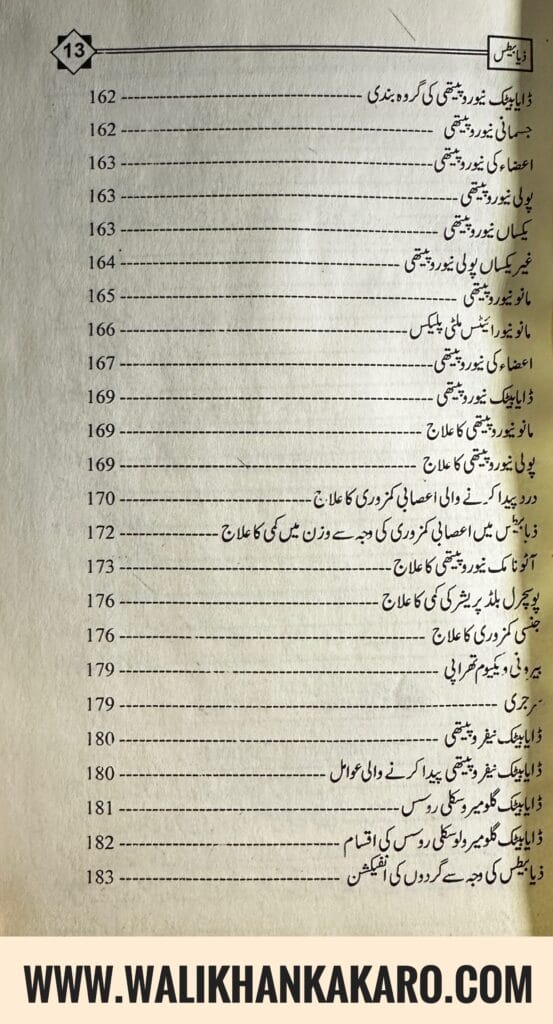 ذیابیطس 13
ڈایابیٹک نیوروپیتھی کی گروہ بندی 162
جسمانی نیوروپیتھی 162
اعضاء کی نیوروپیتھی 163
پولی نیوروپیتھی 163
یکساں نیوروپیتھی 163
غیر یکساں پولی نیوروپیتھی 164
مانونیوروپیتھی 165
مانونیورائیٹس ملٹی پلیکس 166
اعضاء کی نیوروپیتھی 167
ڈایابیٹک نیوروپیتھی 169
مانونیوروپیتھی کا علاج 169
پولی نیوروپیتھی کا علاج 169
درد پیدا کرنے والی اعصابی کمزوری کا علاج 170
ذیابیطس میں اعصابی کمزوری کی وجہ سے وزن میں کمی کا علاج 172
آٹونامک نیوروپیتھی کا علاج 173
پوسچرل بلڈ پریشر کی کمی کا علاج 176
جنسی کمزوری کا علاج 176
بیرونی ویکیوم تھراپی 179
سرجری 179
ڈایابیٹک نیفروپیتھی 180
ڈایابیٹک نیفروپیتھی پیدا کرنے والی عوامل 180
ڈایابیٹک گلومیروسکلی روسس 181
ڈایابیٹک گلومیرولوسکلی روسس کی اقسام 182
ذیابیطس کی وجہ سے گردوں کی انفیکشن 183
WWW.WALIKHANKAKARO.COM